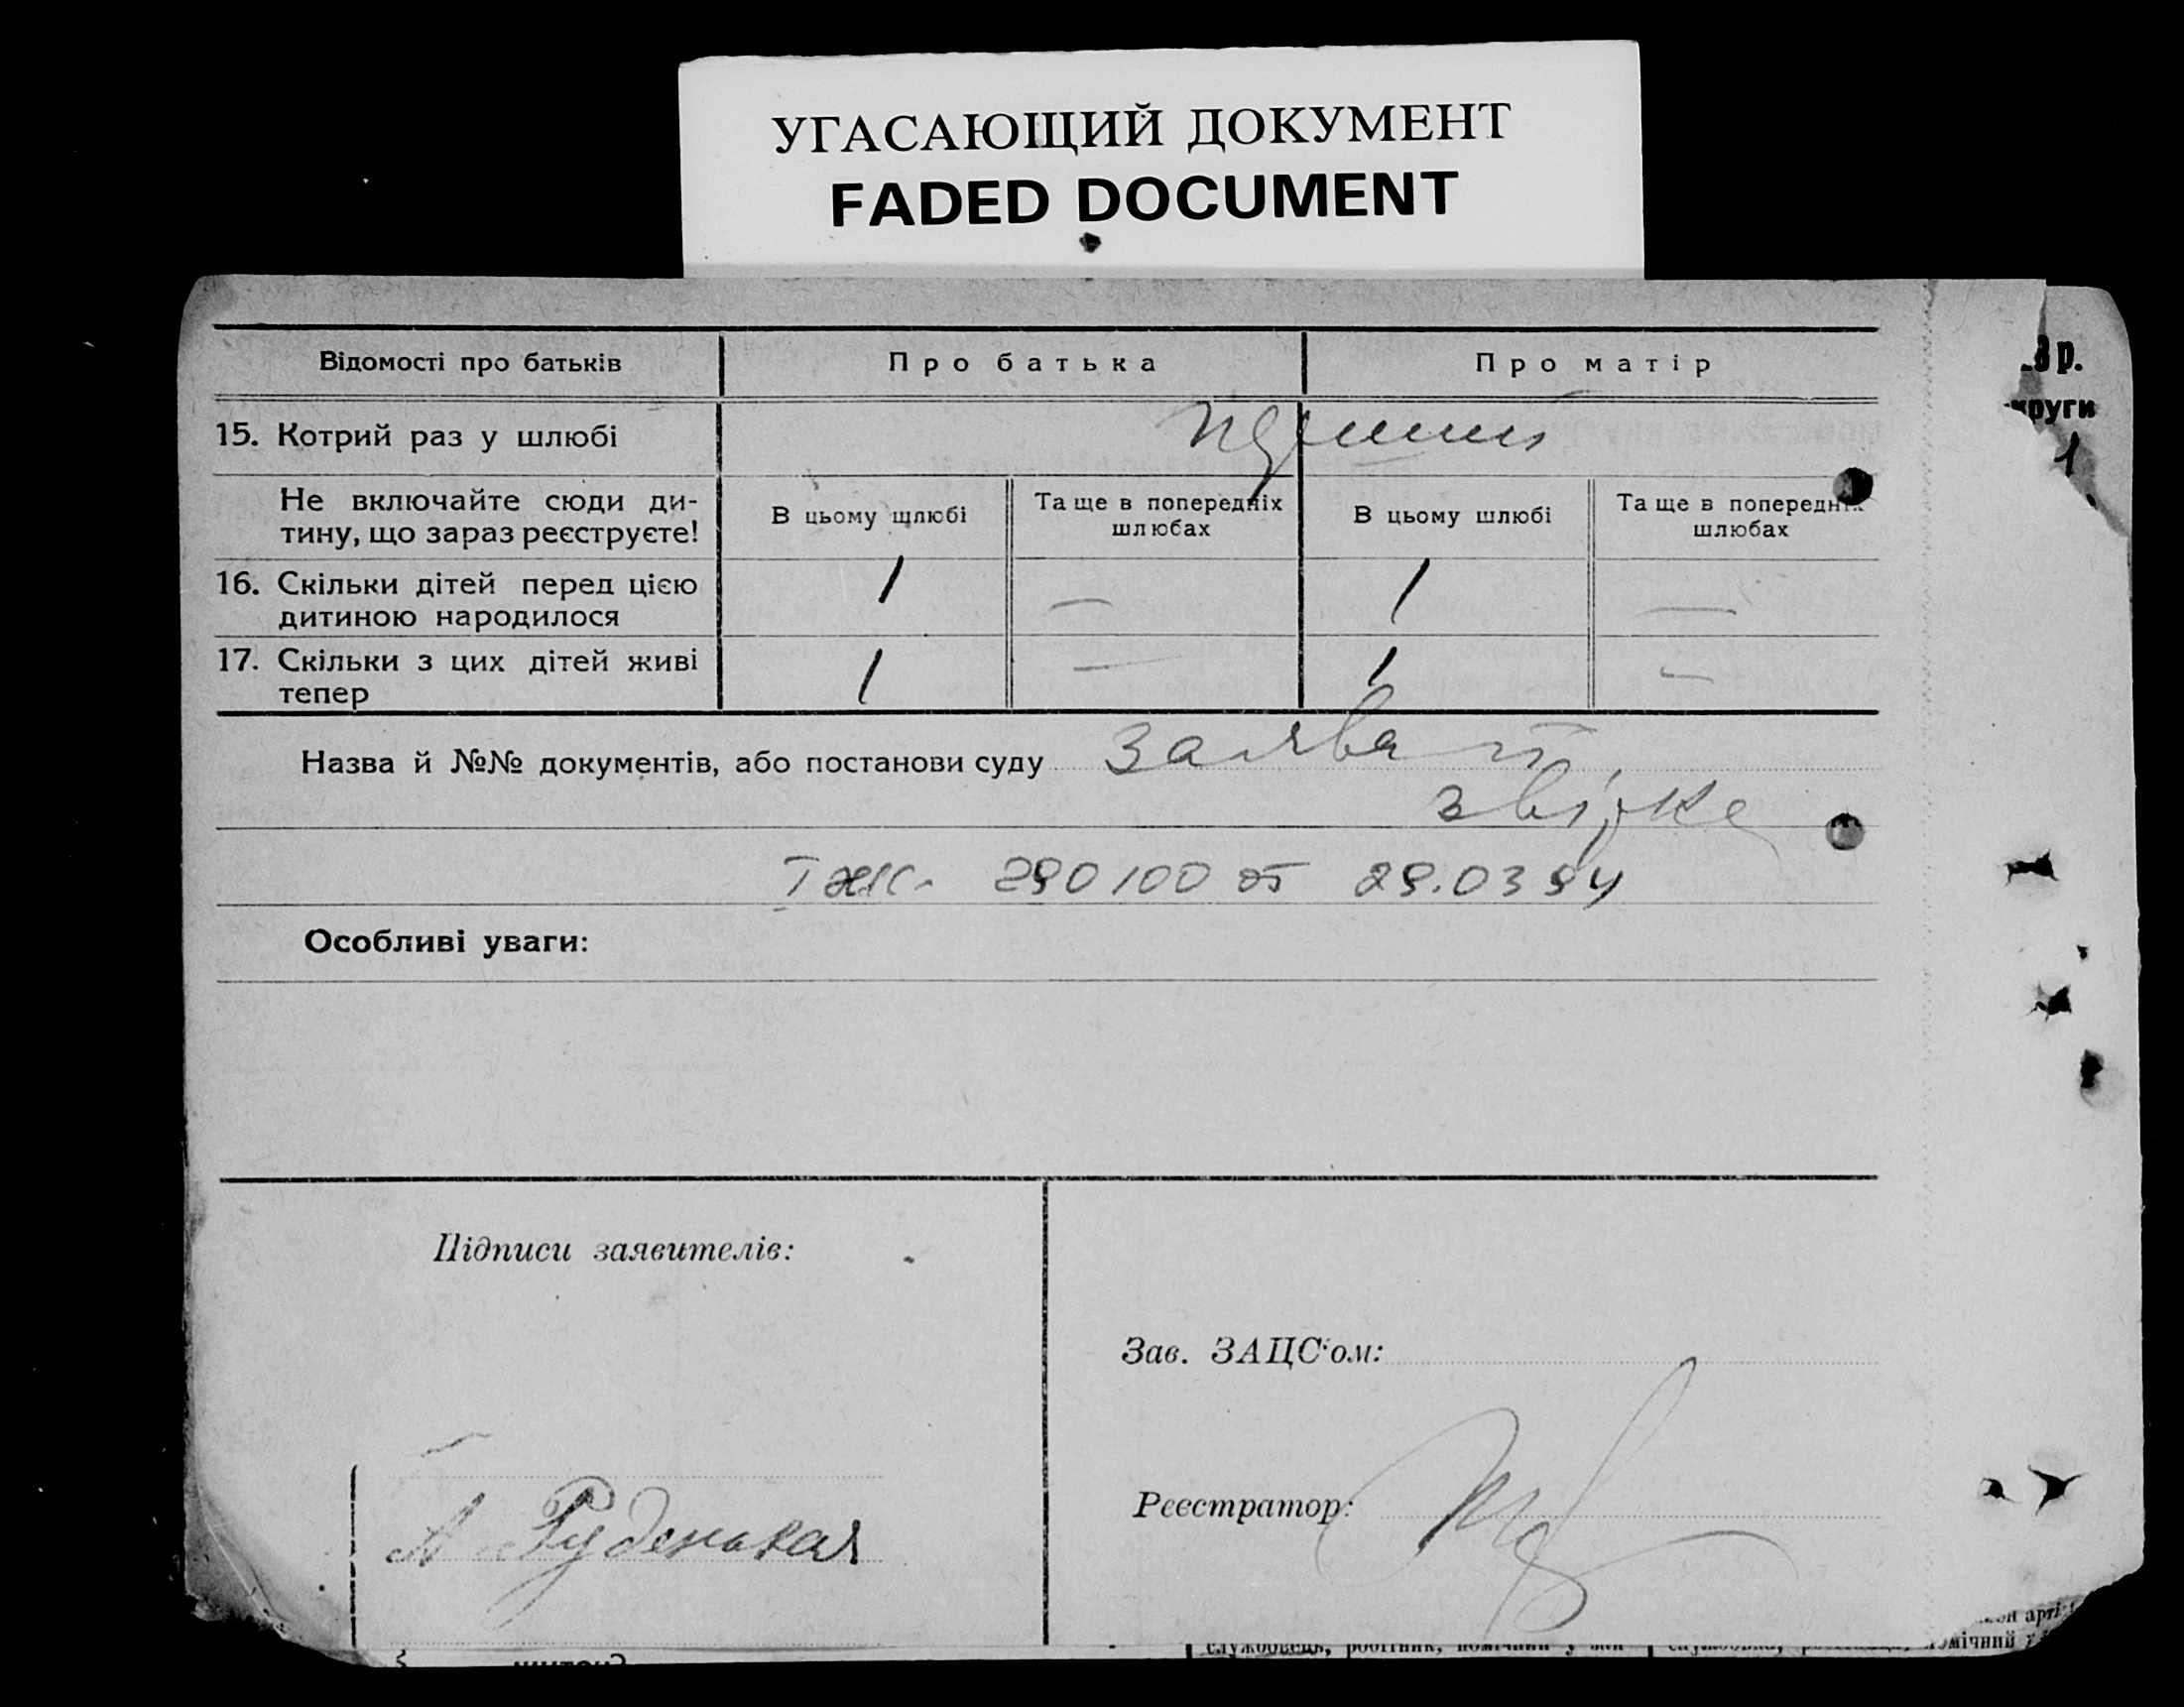 УГАСАЮЩИЙ ДОКУМЕНТ
FADED DOCUMENT
Відомості про батьків
Про батька
Про матір
15. Котрий раз у шлюбі
перший
Не включайте сюди ди-
тину, що зараз реєструєте!
В цьому шлюбі
Та ще в попередніх
шлюбах
В цьому шлюбі
Та ще в попередніх
шлюбах
16. Скільки дітей перед цією
дитиною народилося
1 — 1 —
17. Скільки з цих дітей живі
тепер
1 — 1 —
Назва й №№ документів, або постанови суду заява й
звірка
290100 от 29.03 94
Особливі уваги:
Підписи заявителів:
Зав. ЗАЦС'ом:
Реєстратор:
А Руденькая
р.
круги
1
службовець, робітник, помічний у
мічний